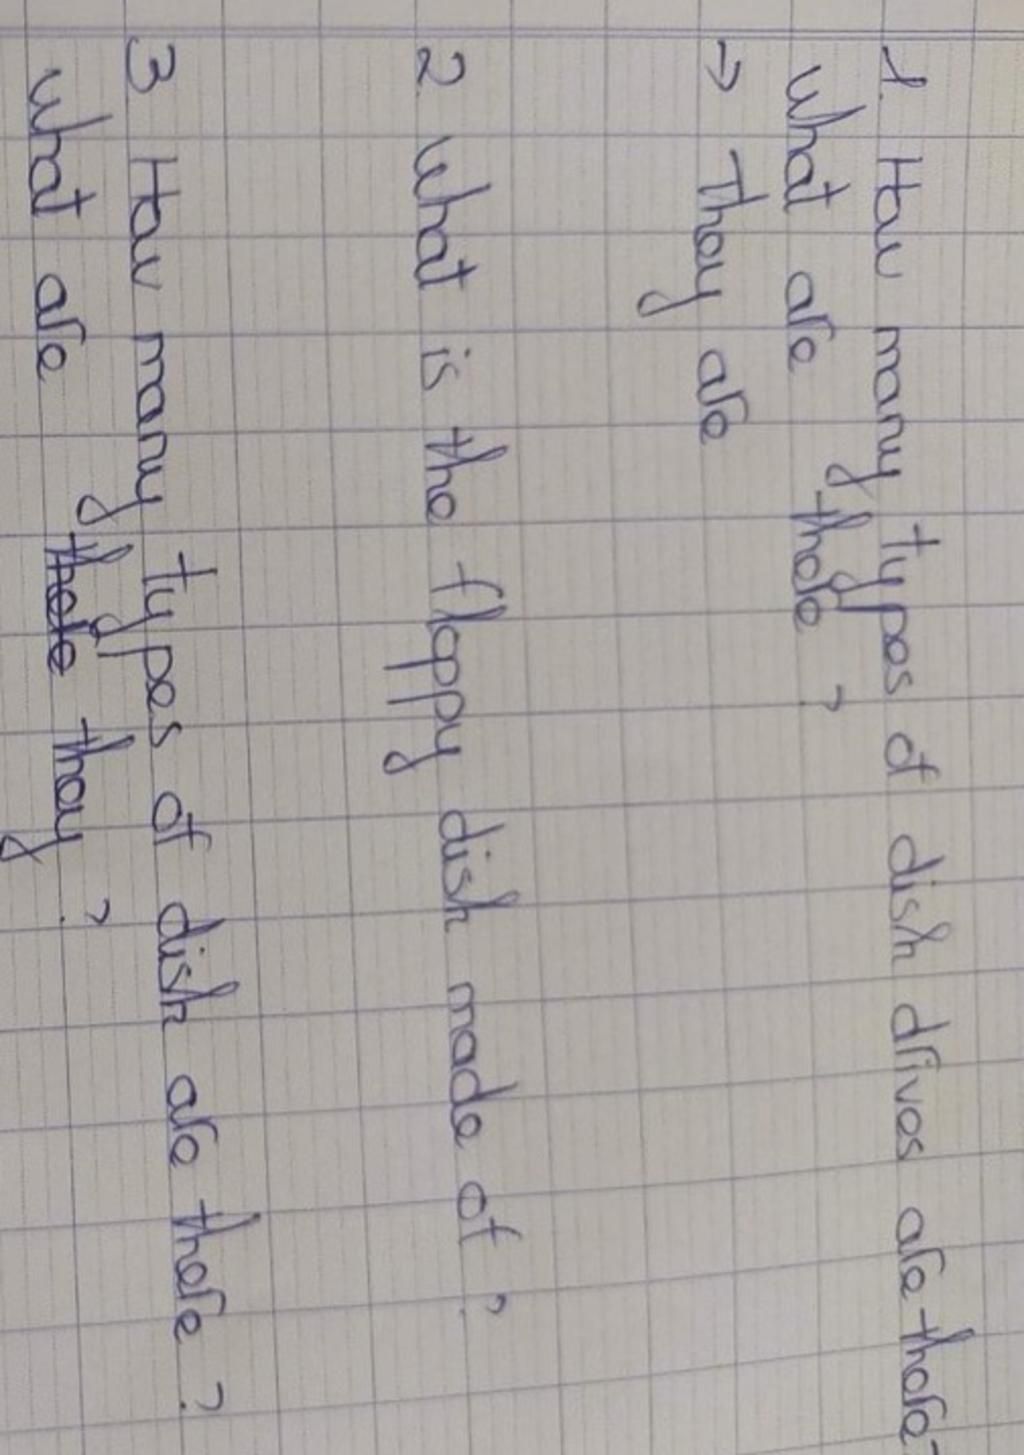 1. How many types of disk drives are there-
What are there ?
→ They are
2 What is the floppy disk made of ?
3 How many types of disk are there ?
What are there they ?